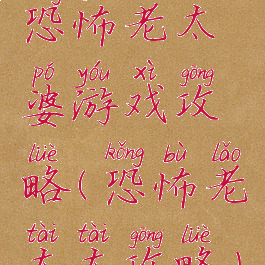 恐怖老太
pó yóu xì gōng
婆游戏攻
lüè kǒng bù lǎo
略(恐怖老
tài tài gōng lüè
太太攻略)